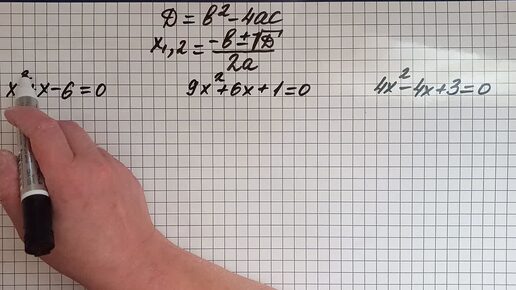 D = b² - 4ac
x₁,₂ = (-b ± √D) / 2a
x² + x - 6 = 0 9x² + 6x + 1 = 0 4x² - 4x + 3 = 0